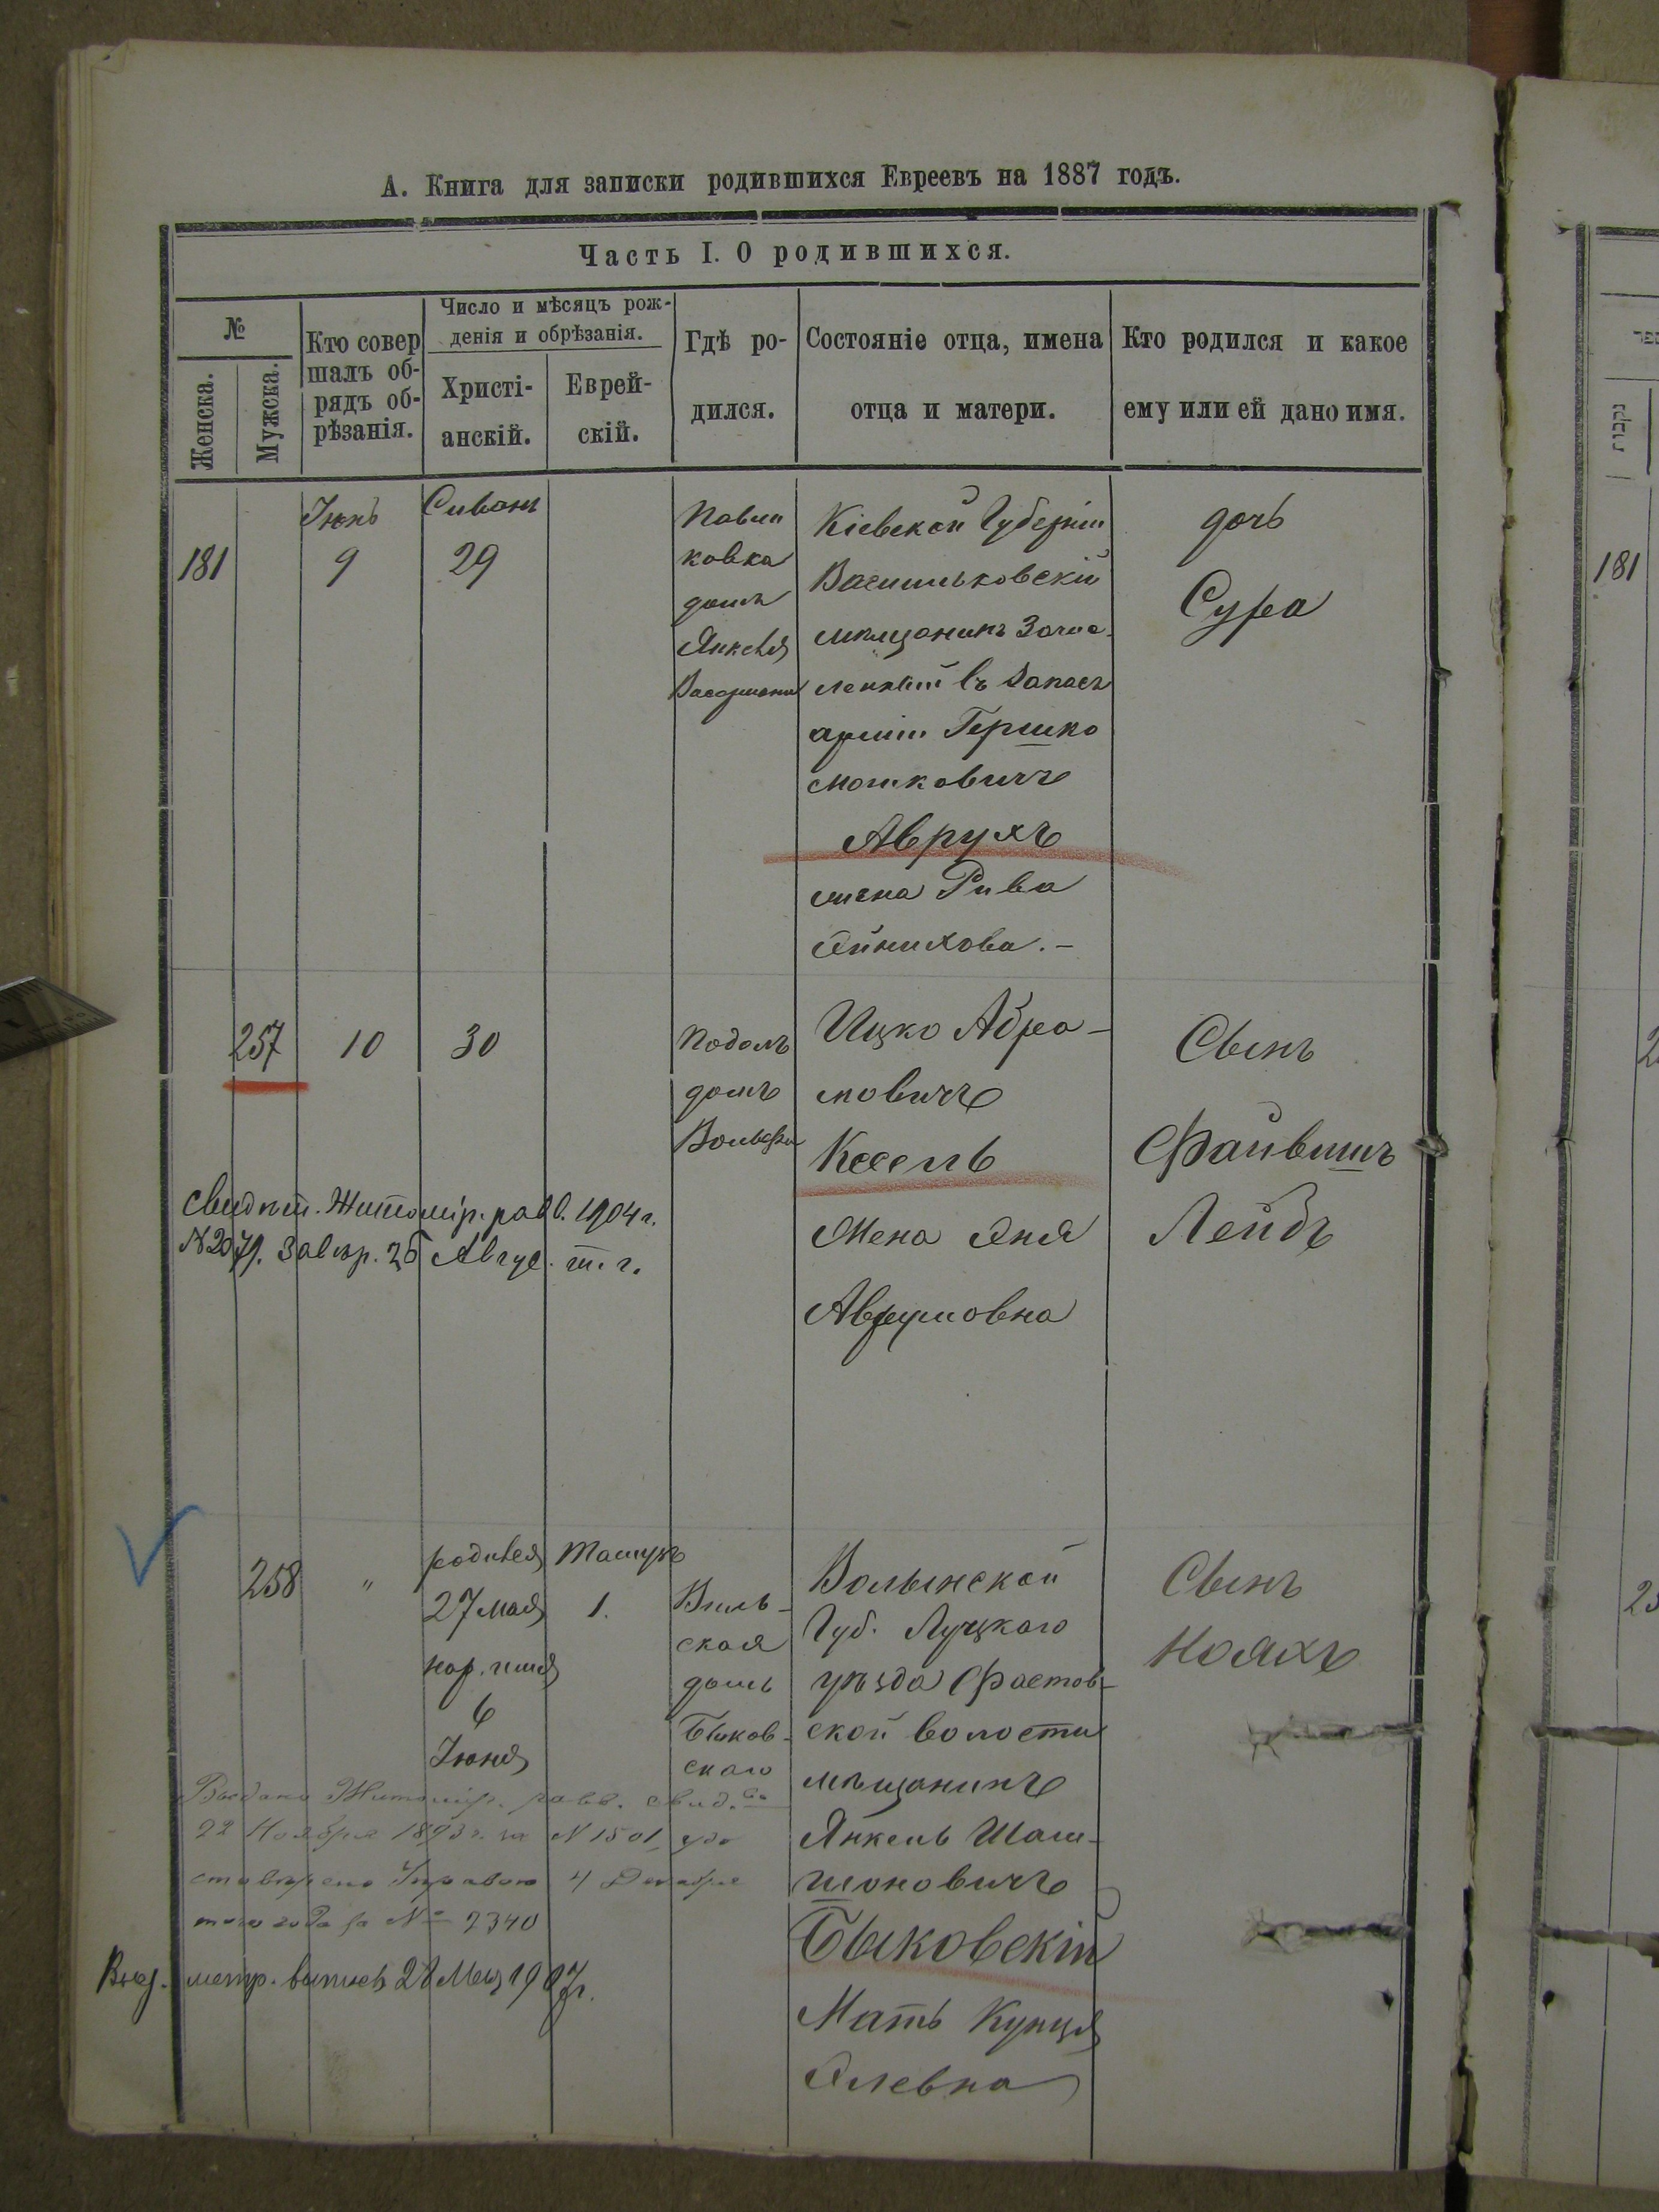 А. Книга для записки родившихся Евреевъ на 1887 годъ.
Часть I. О родившихся.
№
Женска.
Мужска.
Кто совер
шалъ об-
рядъ об-
рѣзанія.
Число и мѣсяцъ рож-
денія и обрѣзанія.
Христі-
анскій.
Еврей-
скій.
Гдѣ ро-
дился.
Состояніе отца, имена
отца и матери.
Кто родился и какое
ему или ей дано имя.
181
Іюнь
9
Сивонъ
29
Павли
ковка
домъ
Янкеля
Кіевской Губерніи
Васильковскій
мѣщанинъ Зачис-
ленный въ запасъ
арміи Гершко
Мошковичъ
Аврухъ
жена Рива
Айнихова.-
дочь
Сура
257
10
30
Подолъ
домъ
Ицко Абра-
мовичъ
Кесель
Жена Эня
Аврумовна
Сынъ
Файвишъ
Лейбъ
Свидѣт. Житомір. равв. 1904 г.
N 2079. Завѣр. 25 Авгус. т. г.
258
"
родился
27 мая
нар. имя
6
Іюня
Тамузъ
1.
Виль-
ская
домъ
Быков-
скаго
Волынской
Губ. Луцкаго
уѣзда Фастов-
ской волости
мѣщанинъ
Янкель Шам-
шоновичъ
Быковскій
Мать Купця
Элевна
Сынъ
Нояхъ
Выдано Житомір. равв. свид.
22 Ноября 1893 г. за N 1501 удо
стовѣрено Управою 4 Декабря
того года за № 2340
Выд. метр. выпись 28 Мая 1907 г.
181